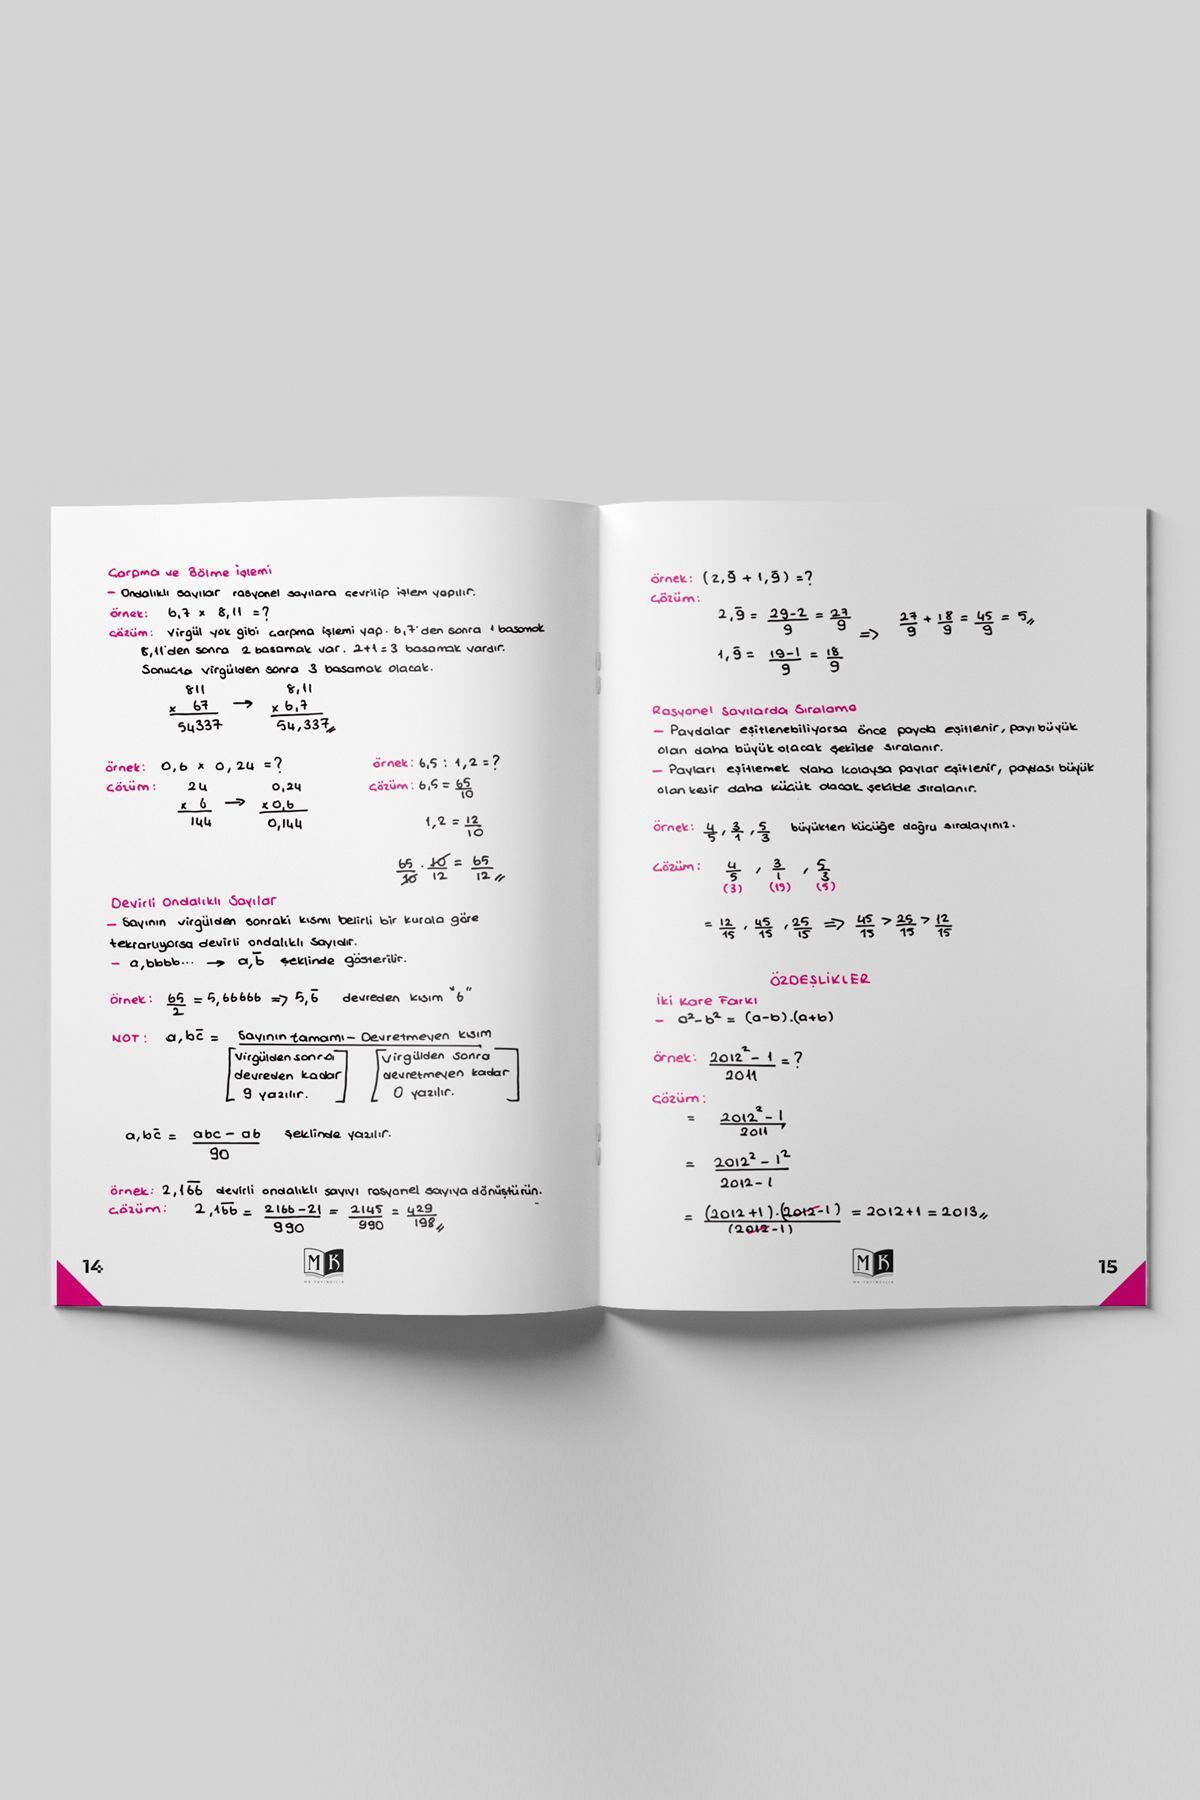 Çarpma ve Bölme işlemi
- Ondalıklı sayılar rasyonel sayılara çevrilip işlem yapılır.
örnek: 6,7 x 8,11 = ?
çözüm: virgül yok gibi çarpma işlemi yap. 6,7'den sonra 1 basamak
8,11'den sonra 2 basamak var. 2+1=3 basamak vardır.
Sonuçta virgülden sonra 3 basamak olacak.
811 8,11
x 67 → x 6,7
54337 54,337
örnek: 0,6 x 0,24 = ?
çözüm: 24 0,24
x 6 → x0,6
144 0,144
örnek: 6,5 : 1,2 = ?
çözüm: 6,5 = 65/10
1,2 = 12/10
65/10 . 10/12 = 65/12
Devirli Ondalıklı Sayılar
- Sayının virgülden sonraki kısmı belirli bir kurala göre
tekrarlıyorsa devirli ondalıklı sayıdır.
- a,bbbb... → a,b̅ şeklinde gösterilir.
örnek: 65/2 = 5,66666 => 5,6̅ devreden kısım "6"
NOT: a,bc̅ = Sayının tamamı - Devretmeyen kısım
[virgülden sonra
devreden kadar
9 yazılır.]
[virgülden sonra
devretmeyen kadar
0 yazılır.]
a,bc̅ = abc - ab / 90 şeklinde yazılır.
örnek: 2,16̅6̅ devirli ondalıklı sayıyı rasyonel sayıya dönüştürün.
çözüm: 2,16̅6̅ = 2166-21/990 = 2145/990 = 429/198
14
MK
MK YAYINCILIK
örnek: (2,9̅ + 1,9̅) = ?
çözüm:
2,9̅ = 29-2/9 = 27/9
=> 27/9 + 18/9 = 45/9 = 5
1,9̅ = 19-1/9 = 18/9
Rasyonel Sayılarda Sıralama
- Paydalar eşitlenebiliyorsa önce payda eşitlenir, payı büyük
olan daha büyük olacak şekilde sıralanır.
- Payları eşitlemek daha kolaysa paylar eşitlenir, paydası büyük
olan kesir daha küçük olacak şekilde sıralanır.
örnek: 4/5, 3/1, 5/3 büyükten küçüğe doğru sıralayınız.
çözüm: 4/5, 3/1, 5/3
(3) (15) (5)
= 12/15, 45/15, 25/15 => 45/15 > 25/15 > 12/15
ÖZDEŞLİKLER
İki Kare Farkı
- a²-b² = (a-b).(a+b)
örnek: 2012²-1/2011 = ?
çözüm:
= 2012²-1/2011
= 2012²-1²/2012-1
= (2012+1).(2012-1)/(2012-1) = 2012+1 = 2013
MK
MK YAYINCILIK
15